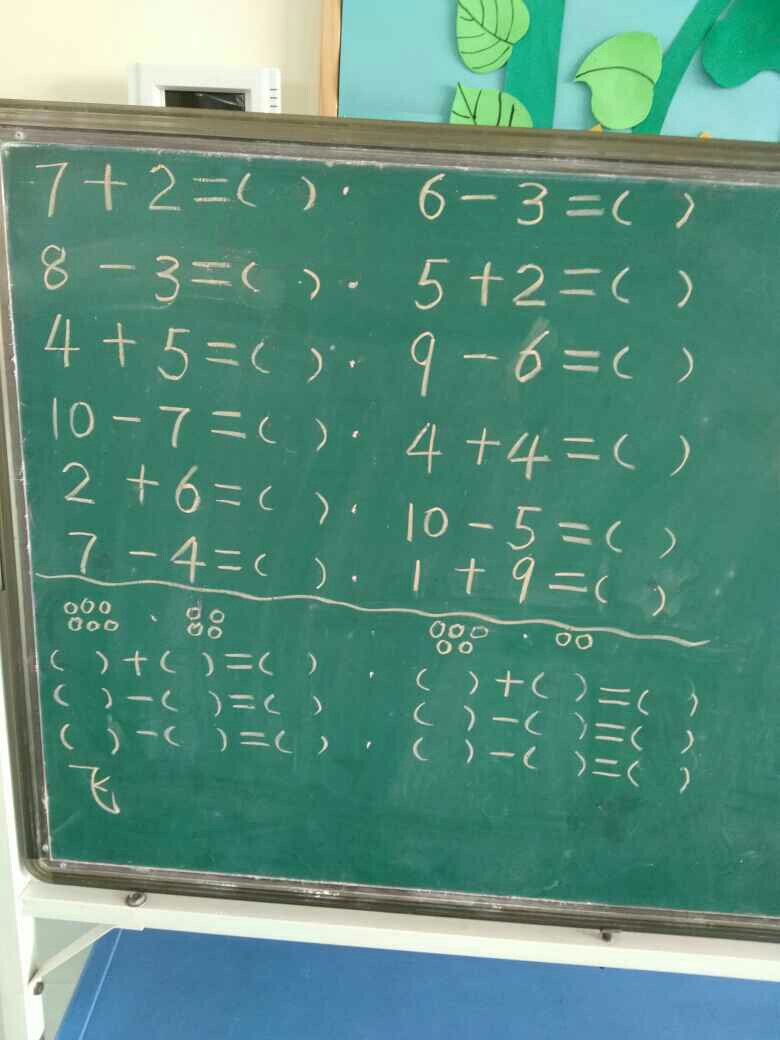 7+2=( ). 6-3=( )
8-3=( ). 5+2=( )
4+5=( ). 9-6=( )
10-7=( ). 4+4=( )
2+6=( ). 10-5=( )
7-4=( ). 1+9=( )
( )+( )=( ). ( )+( )=( )
( )-( )=( ) ( )-( )=( )
( )-( )=( ). ( )-( )=( )
飞